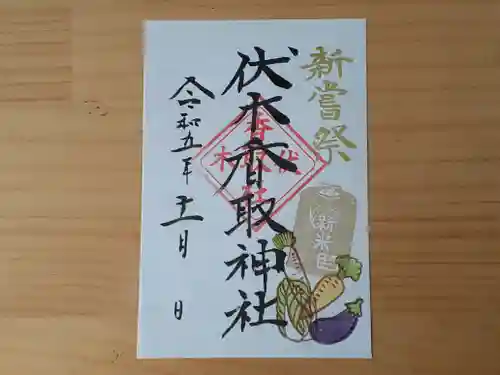 新嘗祭
伏木香取神社
令和五年十一月 日
新米